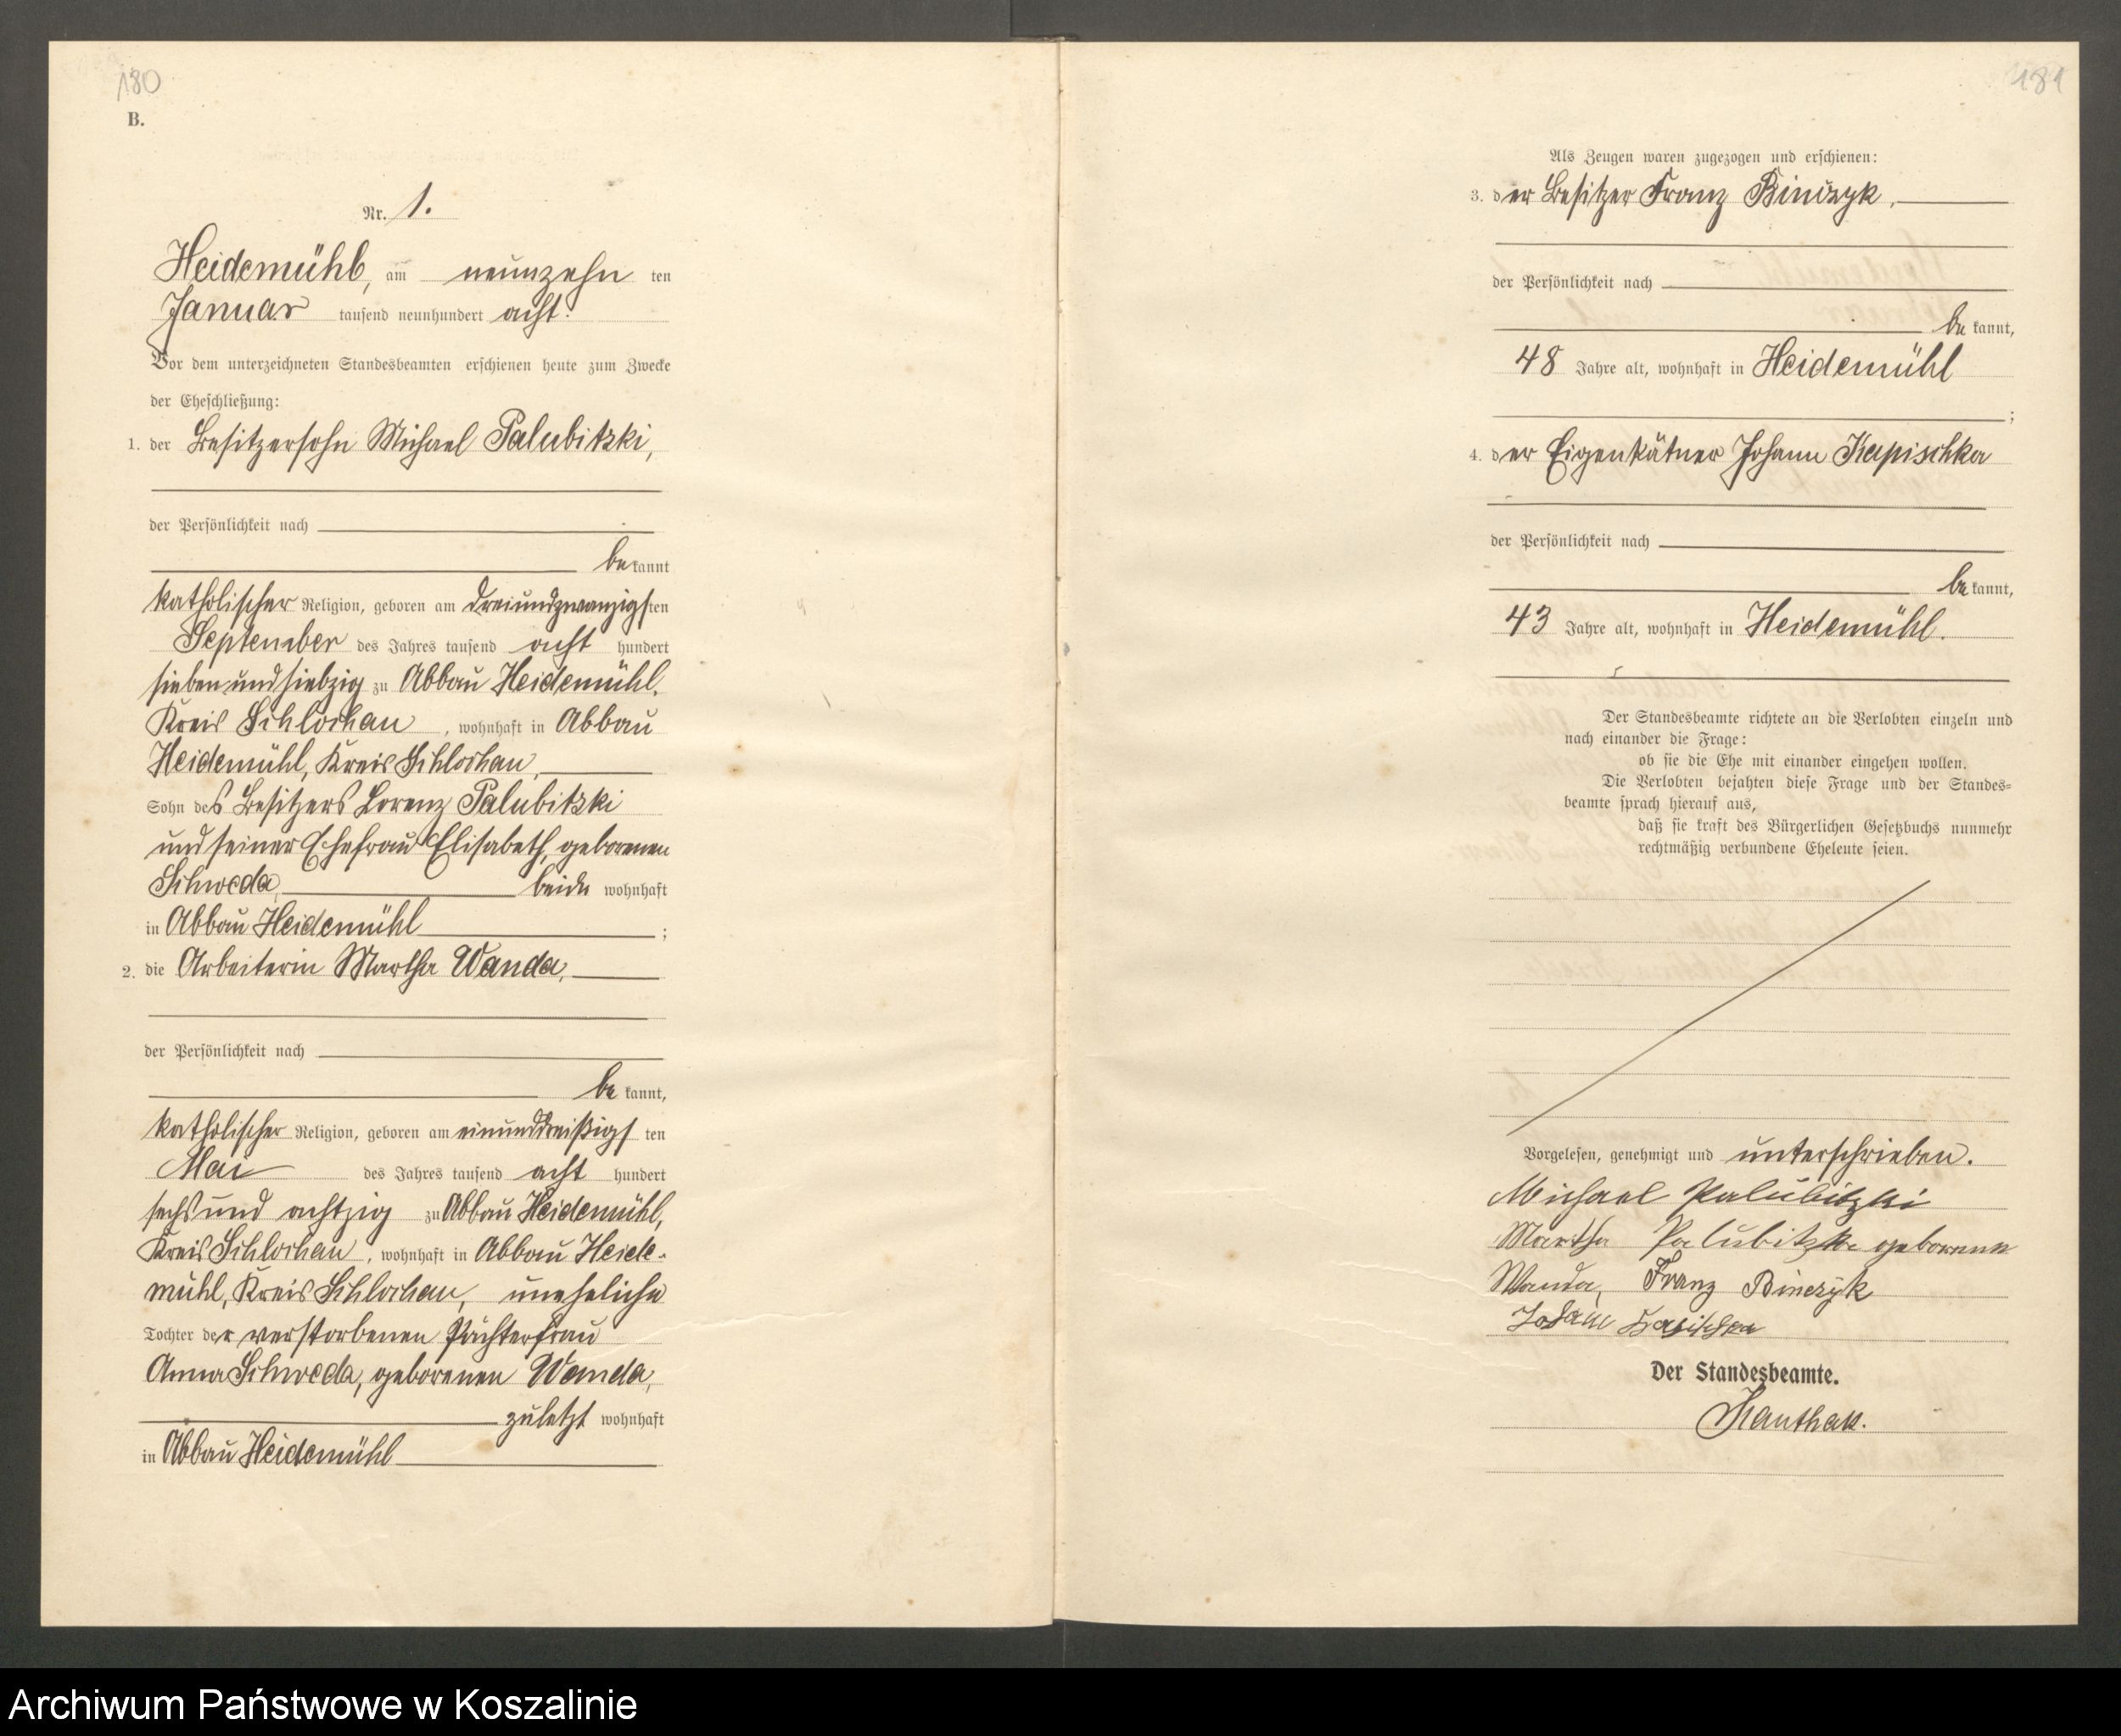 180
B.
Nr. 1.
Heidemühl, am neunzehn ten
Januar tausend neunhundert acht.
Vor dem unterzeichneten Standesbeamten erschienen heute zum Zwecke
der Eheschließung:
1. der Besitzersohn Michael Palubitzki,
der Persönlichkeit nach
be kannt
katholischer Religion, geboren am dreiundzwanzigsten
September des Jahres tausend acht hundert
siebenundsiebzig zu Abbau Heidemühl,
Kreis Schlochau, wohnhaft in Abbau
Heidemühl, Kreis Schlochau,
Sohn des Besitzers Lorenz Palubitzki
und seiner Ehefrau Elisabeth, geborenen
Schweda, beide wohnhaft
in Abbau Heidemühl ;
2. die Arbeiterin Martha Wanda,
der Persönlichkeit nach
be kannt,
katholischer Religion, geboren am einunddreißigs ten
Mai des Jahres tausend acht hundert
sechsund achtzig zu Abbau Heidemühl,
Kreis Schlochau, wohnhaft in Abbau Heide-
mühl, Kreis Schlochau, uneheliche
Tochter der verstorbenen Pächterfrau
Anna Schweda, geborenen Wanda,
zuletzt wohnhaft
in Abbau Heidemühl
181
Als Zeugen waren zugezogen und erschienen:
3. der Besitzer Franz Binczyk,
der Persönlichkeit nach
be kannt,
48 Jahre alt, wohnhaft in Heidemühl
;
4. der Eigenkätner Johann Kapischka
der Persönlichkeit nach
be kannt,
43 Jahre alt, wohnhaft in Heidemühl.
Der Standesbeamte richtete an die Verlobten einzeln und
nach einander die Frage:
ob sie die Ehe mit einander eingehen wollen.
Die Verlobten bejahten diese Frage und der Standes=
beamte sprach hierauf aus,
daß sie kraft des Bürgerlichen Gesetzbuchs nunmehr
rechtmäßig verbundene Eheleute seien.
Vorgelesen, genehmigt und unterschrieben.
Michael Palubitzki
Martha Palubitzki geborene
Wanda, Franz Binczyk
Johann
Der Standesbeamte.
Kanthak.
Archiwum Państwowe w Koszalinie